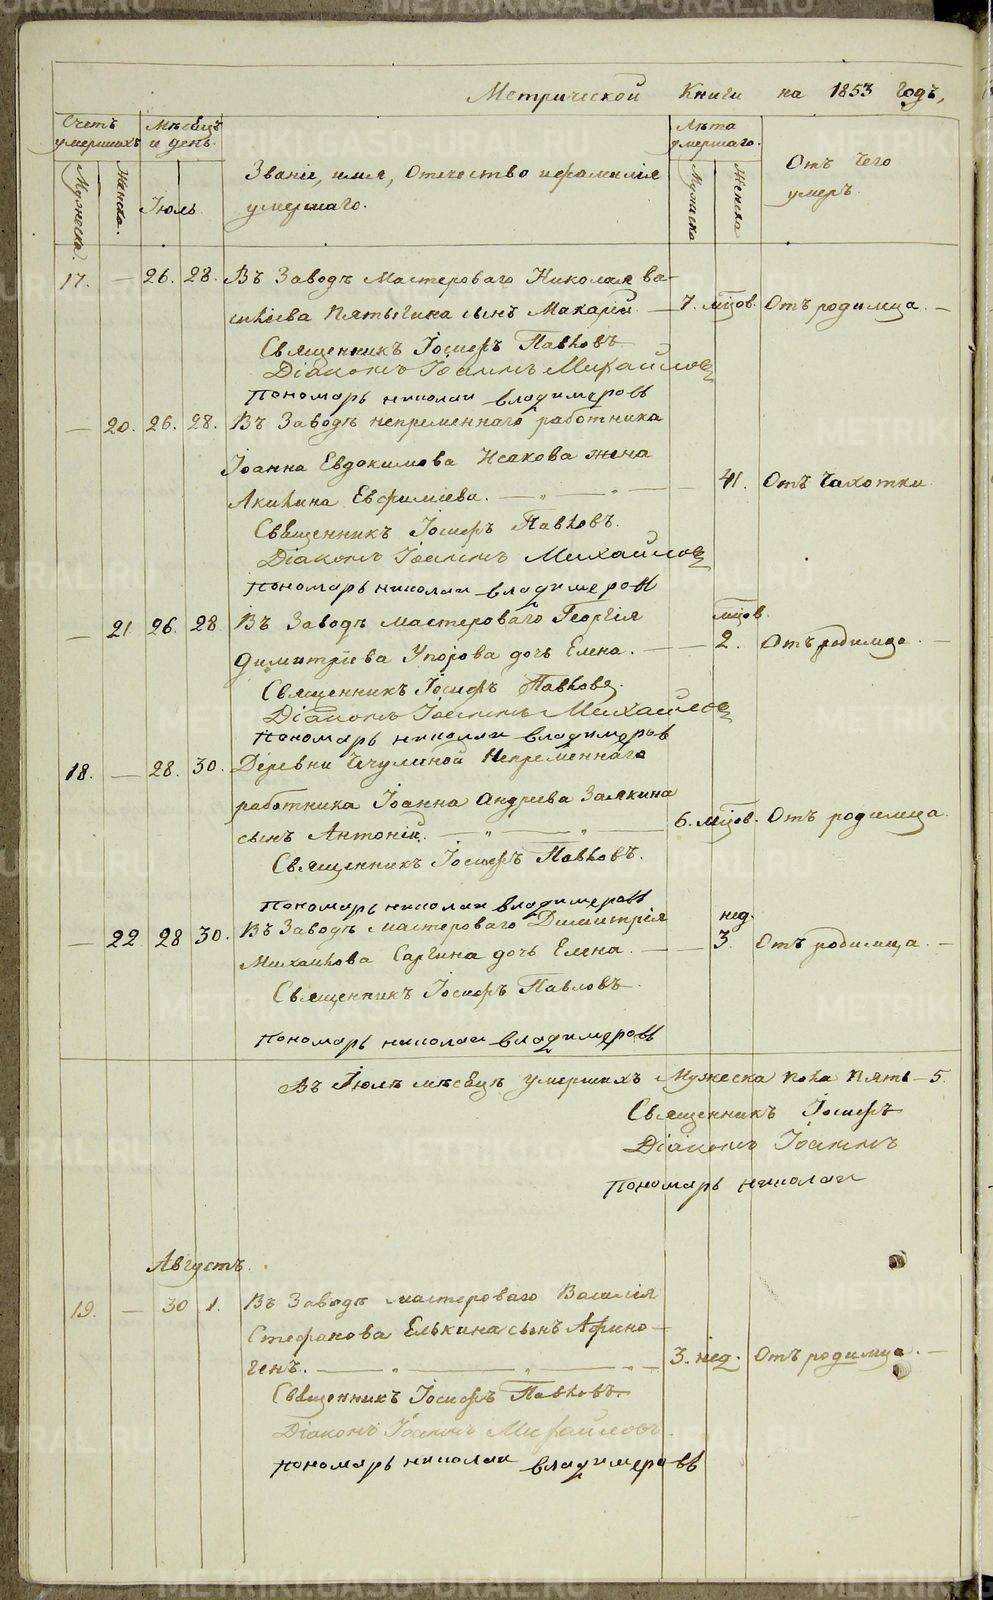 Метрической Книги на 1853 годъ,
Счетъ умершихъ
Мѣсяцъ и день
Лѣта умершаго.
Мужеска.
Женска.
Іюль
Званіе, имя, Отечество и фамилія
умершаго.
Мужеска
Женска
Отъ Чего
умеръ
17. — 26. 28. Въ Заводѣ Мастероваго Николая Ва-
сильева Пятыгина сынъ Макарій. — 7. мцов. Отъ родимца. —
Священникъ Іосифъ Павловъ
Діаконъ Іоаннъ Михайловъ
Пономарь николай владимеровъ
— 20. 26. 28. Въ Заводѣ непременнаго работника
Іоанна Евдокимова Исакова жена
Акилина Евфиміева. — „ — „ — 41. Отъ Чахотки
Священникъ Іосифъ Павловъ.
Діаконъ Іоаннъ Михайловъ
Пономарь николай владимеровъ
— 21 26 28 Въ Заводѣ мастероваго Георгія мцов.
Димитріева Упорова дочь Елена. — — 2. Отъ родимца —
Священникъ Іосифъ Павловъ.
Діаконъ Іоаннъ Михайловъ
Пономарь николай владимеров
18. — 28. 30. Деревни Чечулиной Непременнаго
работника Іоанна Андреева Заякина
сынъ Антоній. — „ — „ — 6. мцов. Отъ родимца.
Священникъ Іосифъ Павловъ.
Пономарь николай владимеровъ
— 22 28 30. Въ Заводѣ мастероваго Димитрія нед.
Михайлова Саргина дочь Елена. — — 3. Отъ родимца. —
Священникъ Іосифъ Павловъ
Пономарь николай владимеровъ
Въ Іюлѣ мѣсяцѣ умершихъ Мужеска пола Пять — 5.
Священникъ Іосифъ
Діаконъ Іоаннъ
Пономарь николай
Августъ.
19. — 30 1. Въ Заводѣ мастероваго Василія
Стефанова Елькина сынъ Афино-
генъ. — „ — „ — „ — 3. нед. Отъ родимца. —
Священникъ Іосифъ Павловъ.
Діаконъ Іоаннъ Михайловъ.
Пономарь николай владимеровъ
METRIKI.GASO-URAL.RU